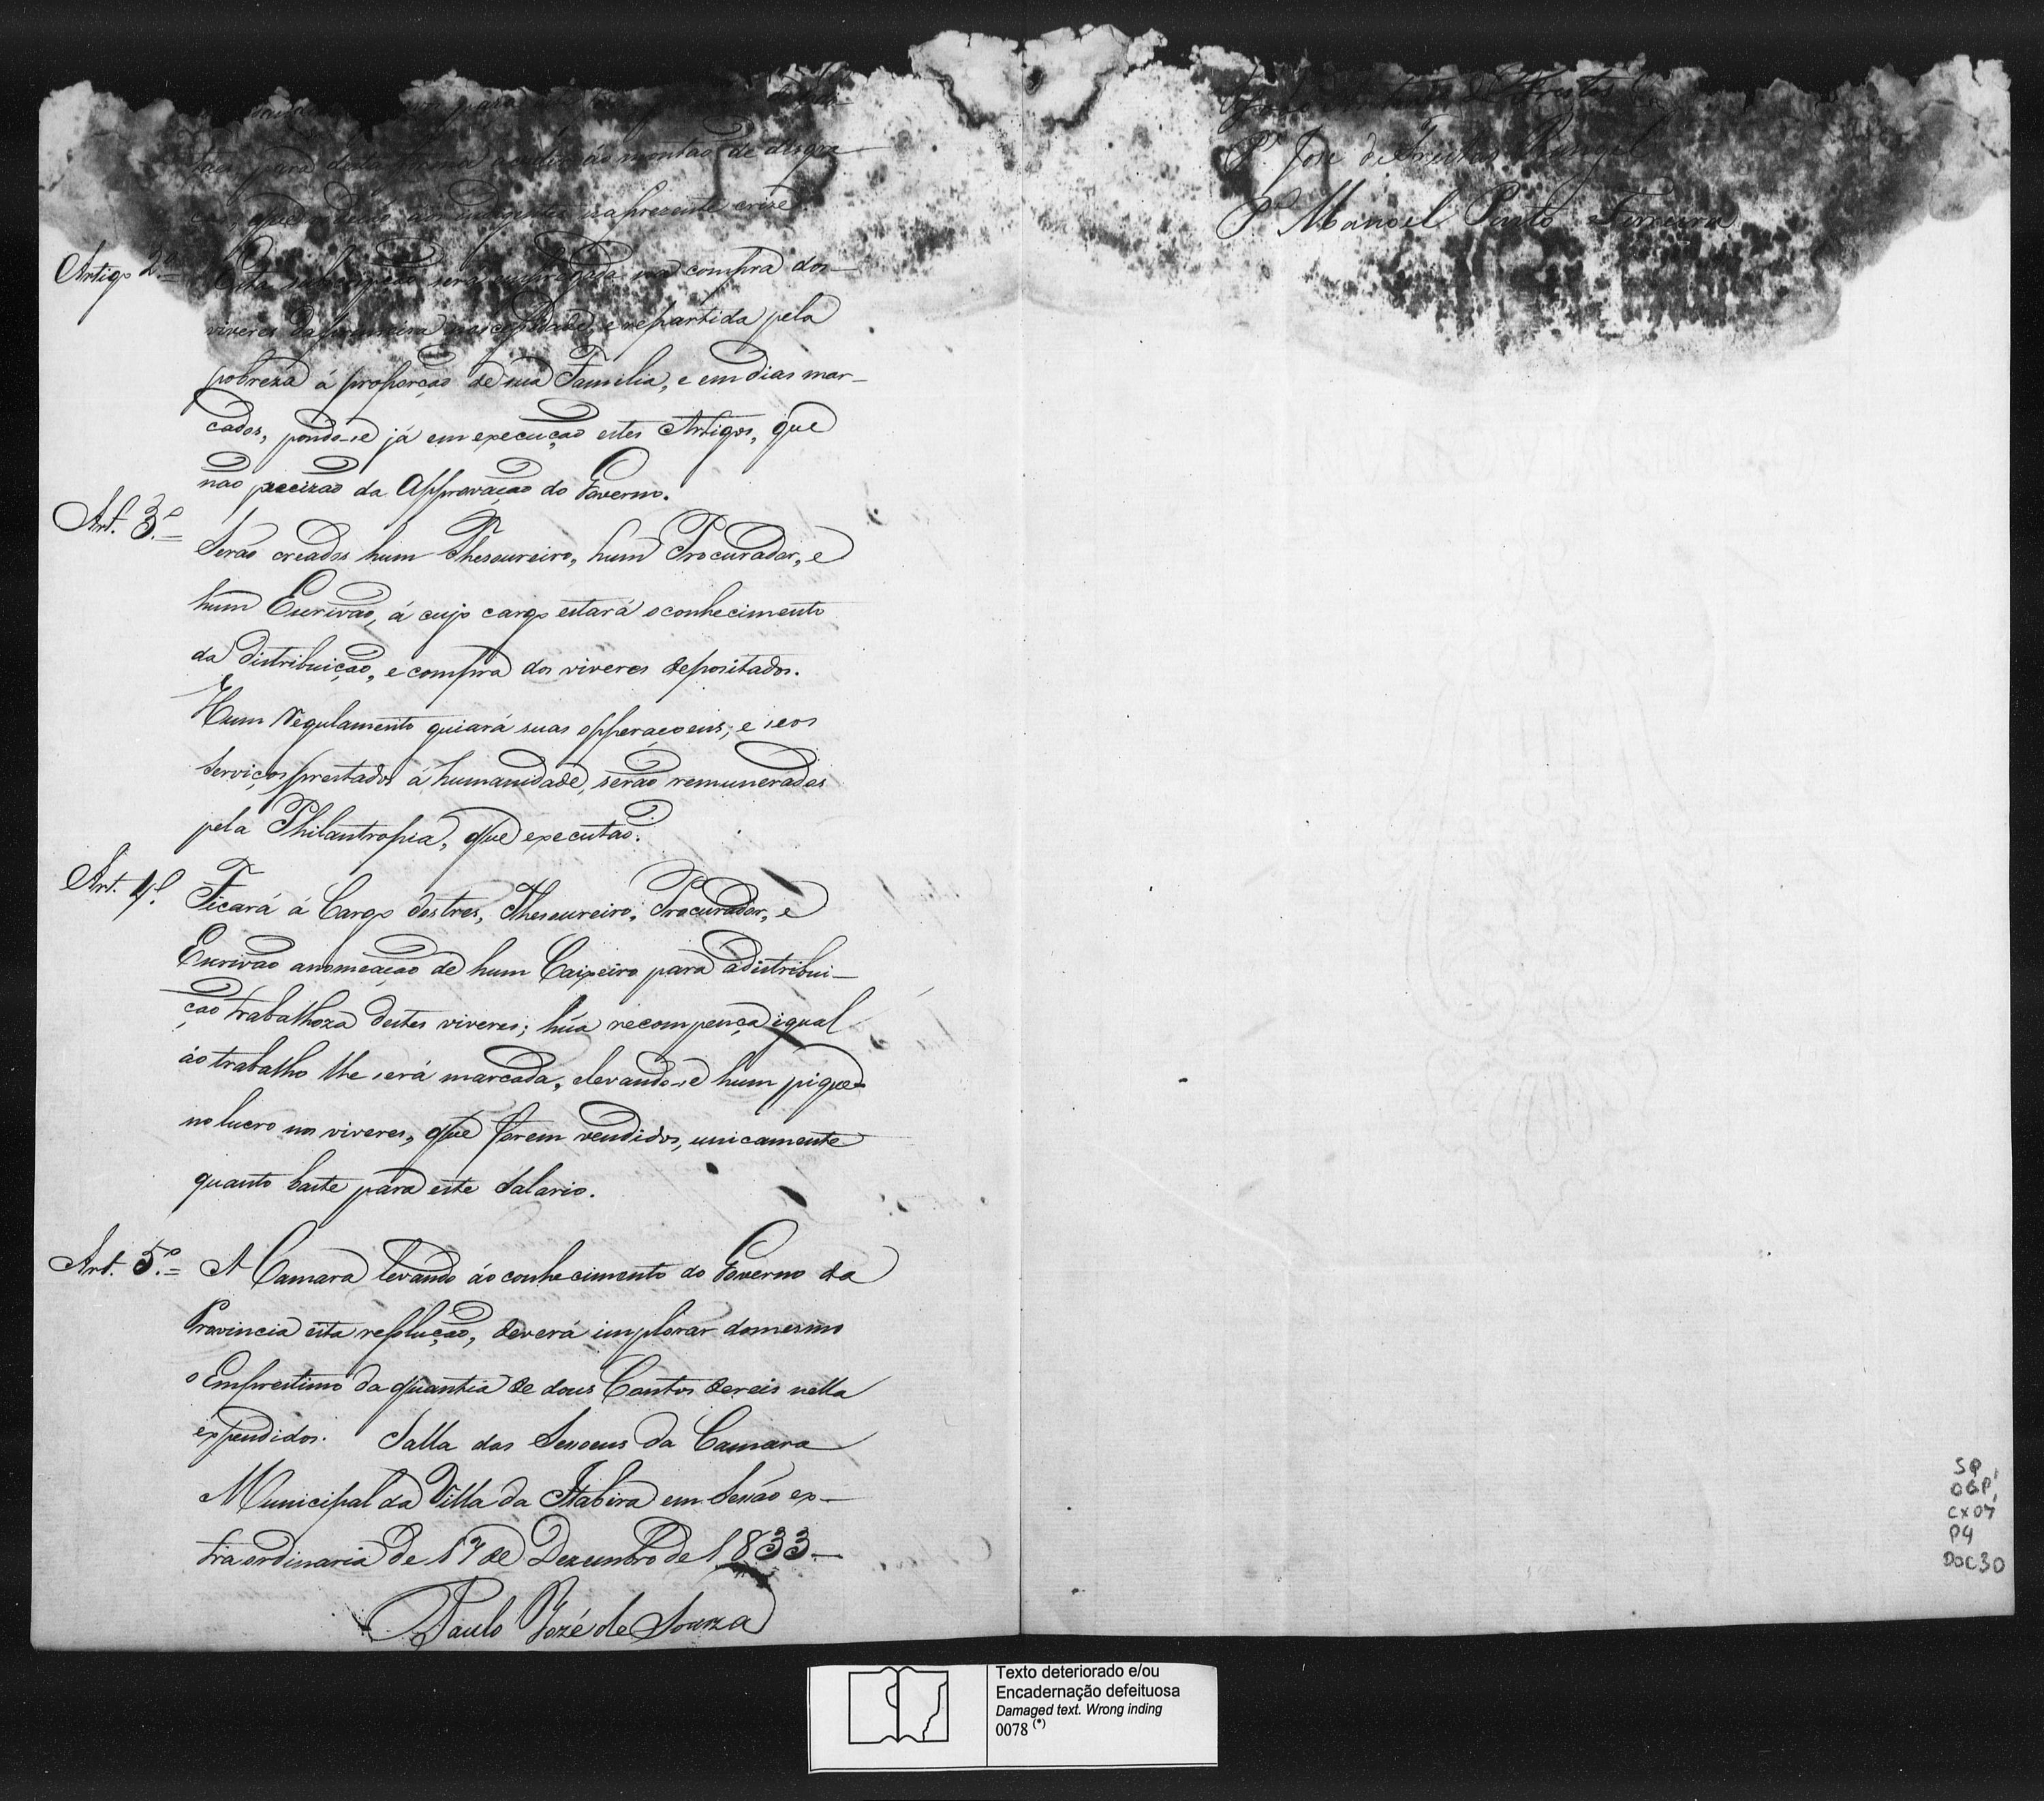 para desta forma acudir ao montão de desgra-
ças, que aos indigentes na prezente crize.
Artigo 2.º = Esta subscripção será empregada na compra dos
viveres da primeira necessidade, e repartida pela
pobreza á proporção de sua Familia, e em dias mar-
cados, pondo-se já em execução estes Artigos, que
não precizão da Approvação do Governo.
Art. 3.º = Serão creados hum Thesoureiro, hum Procurador, e
hum Escrivão, á cujo cargo estará o conhecimento
da distribuição, e compra dos viveres depositados.
Hum Regulamento guiará suas opperaçoens; e seos
serviços prestados á humanidade, serão remunerados
pela Philantropia, que executão.
Art. 4.º Ficará á Cargo dos tres, Thesoureiro, Procurador, e
Escrivão a nomeação de hum Caixeiro para a distribui-
ção trabalhoza destes viveres; hũa recompença igual
áo trabalho lhe será marcada, elevando-se hum pique-
no lucro nos viveres, que forem vendidos, unicamente
quanto baste para este salario.
Art. 5.º = A Camara levando áo conhecimento do Governo da
Provincia esta resolução, deverá implorar do mesmo
o Emprestimo da quantia de dous Contos de reis nella
expendidos. Salla das Sessoens da Camara
Municipal da Villa da Itabira em Sessão ex-
traordinaria de 17 de Dezembro de 1833-
Paulo José de Souza
P. José de Freitas Rangel
P. Manoel Pinto Ferreira
SP,
OGP,
CX07
P4
DOC30
Texto deteriorado e/ou
Encadernação defeituosa
Damaged text. Wrong inding
0078 (*)